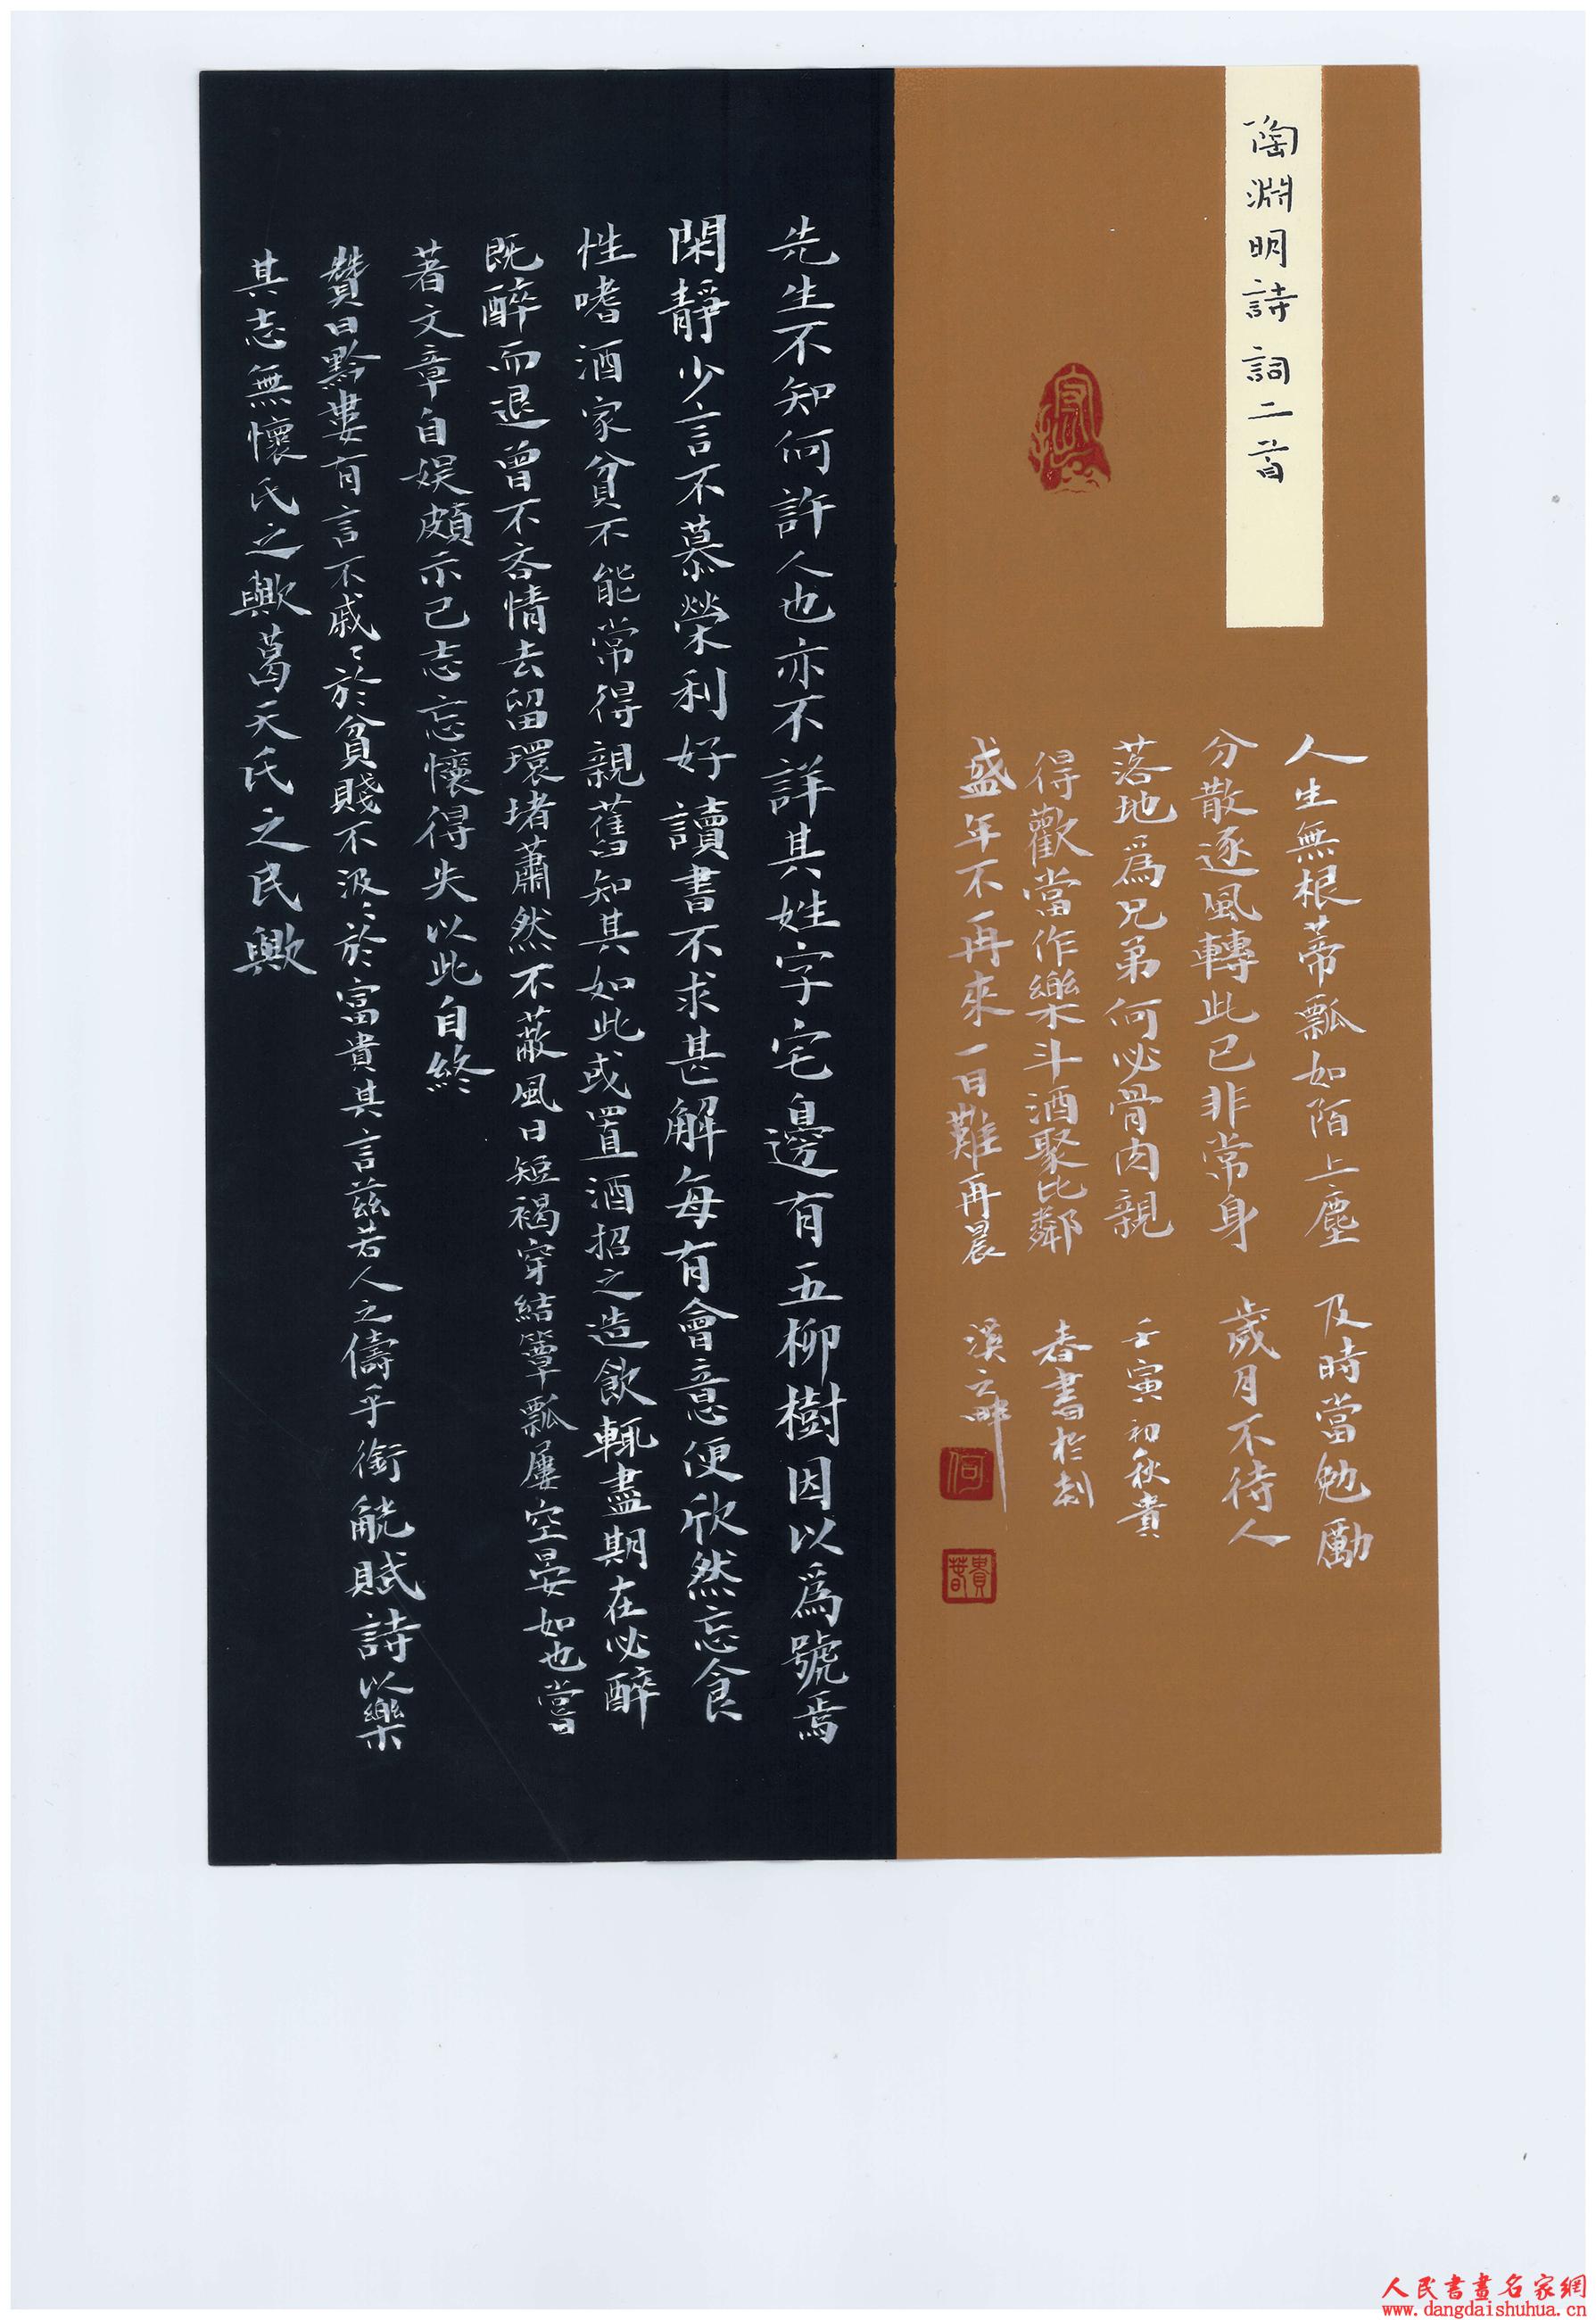 陶淵明詩詞二首
人生無根蒂瓢如陌上塵
分散逐風轉此已非常身
落地爲兄弟何必骨肉親
得歡當作樂斗酒聚比鄰
盛年不再來一日難再晨
及時當勉勵
歲月不待人
壬寅初秋貴
春書於剡
溪之畔
何
貴春
先生不知何許人也亦不詳其姓字宅邊有五柳樹因以爲號焉
閑靜少言不慕榮利好讀書不求甚解每有會意便欣然忘食
性嗜酒家貧不能常得親舊知其如此或置酒招之造飲輒盡期在必醉
既醉而退曾不吝情去留環堵蕭然不蔽風日短褐穿結簞瓢屢空晏如也嘗
著文章自娛頗示己志忘懷得失以此自終
贊曰黔婁有言不戚〻於貧賤不汲〻於富貴其言茲若人之儔乎銜觥賦詩以樂
其志無懷氏之歟葛天氏之民歟
人民書畫名家網
www.dangdaishuhua.cn